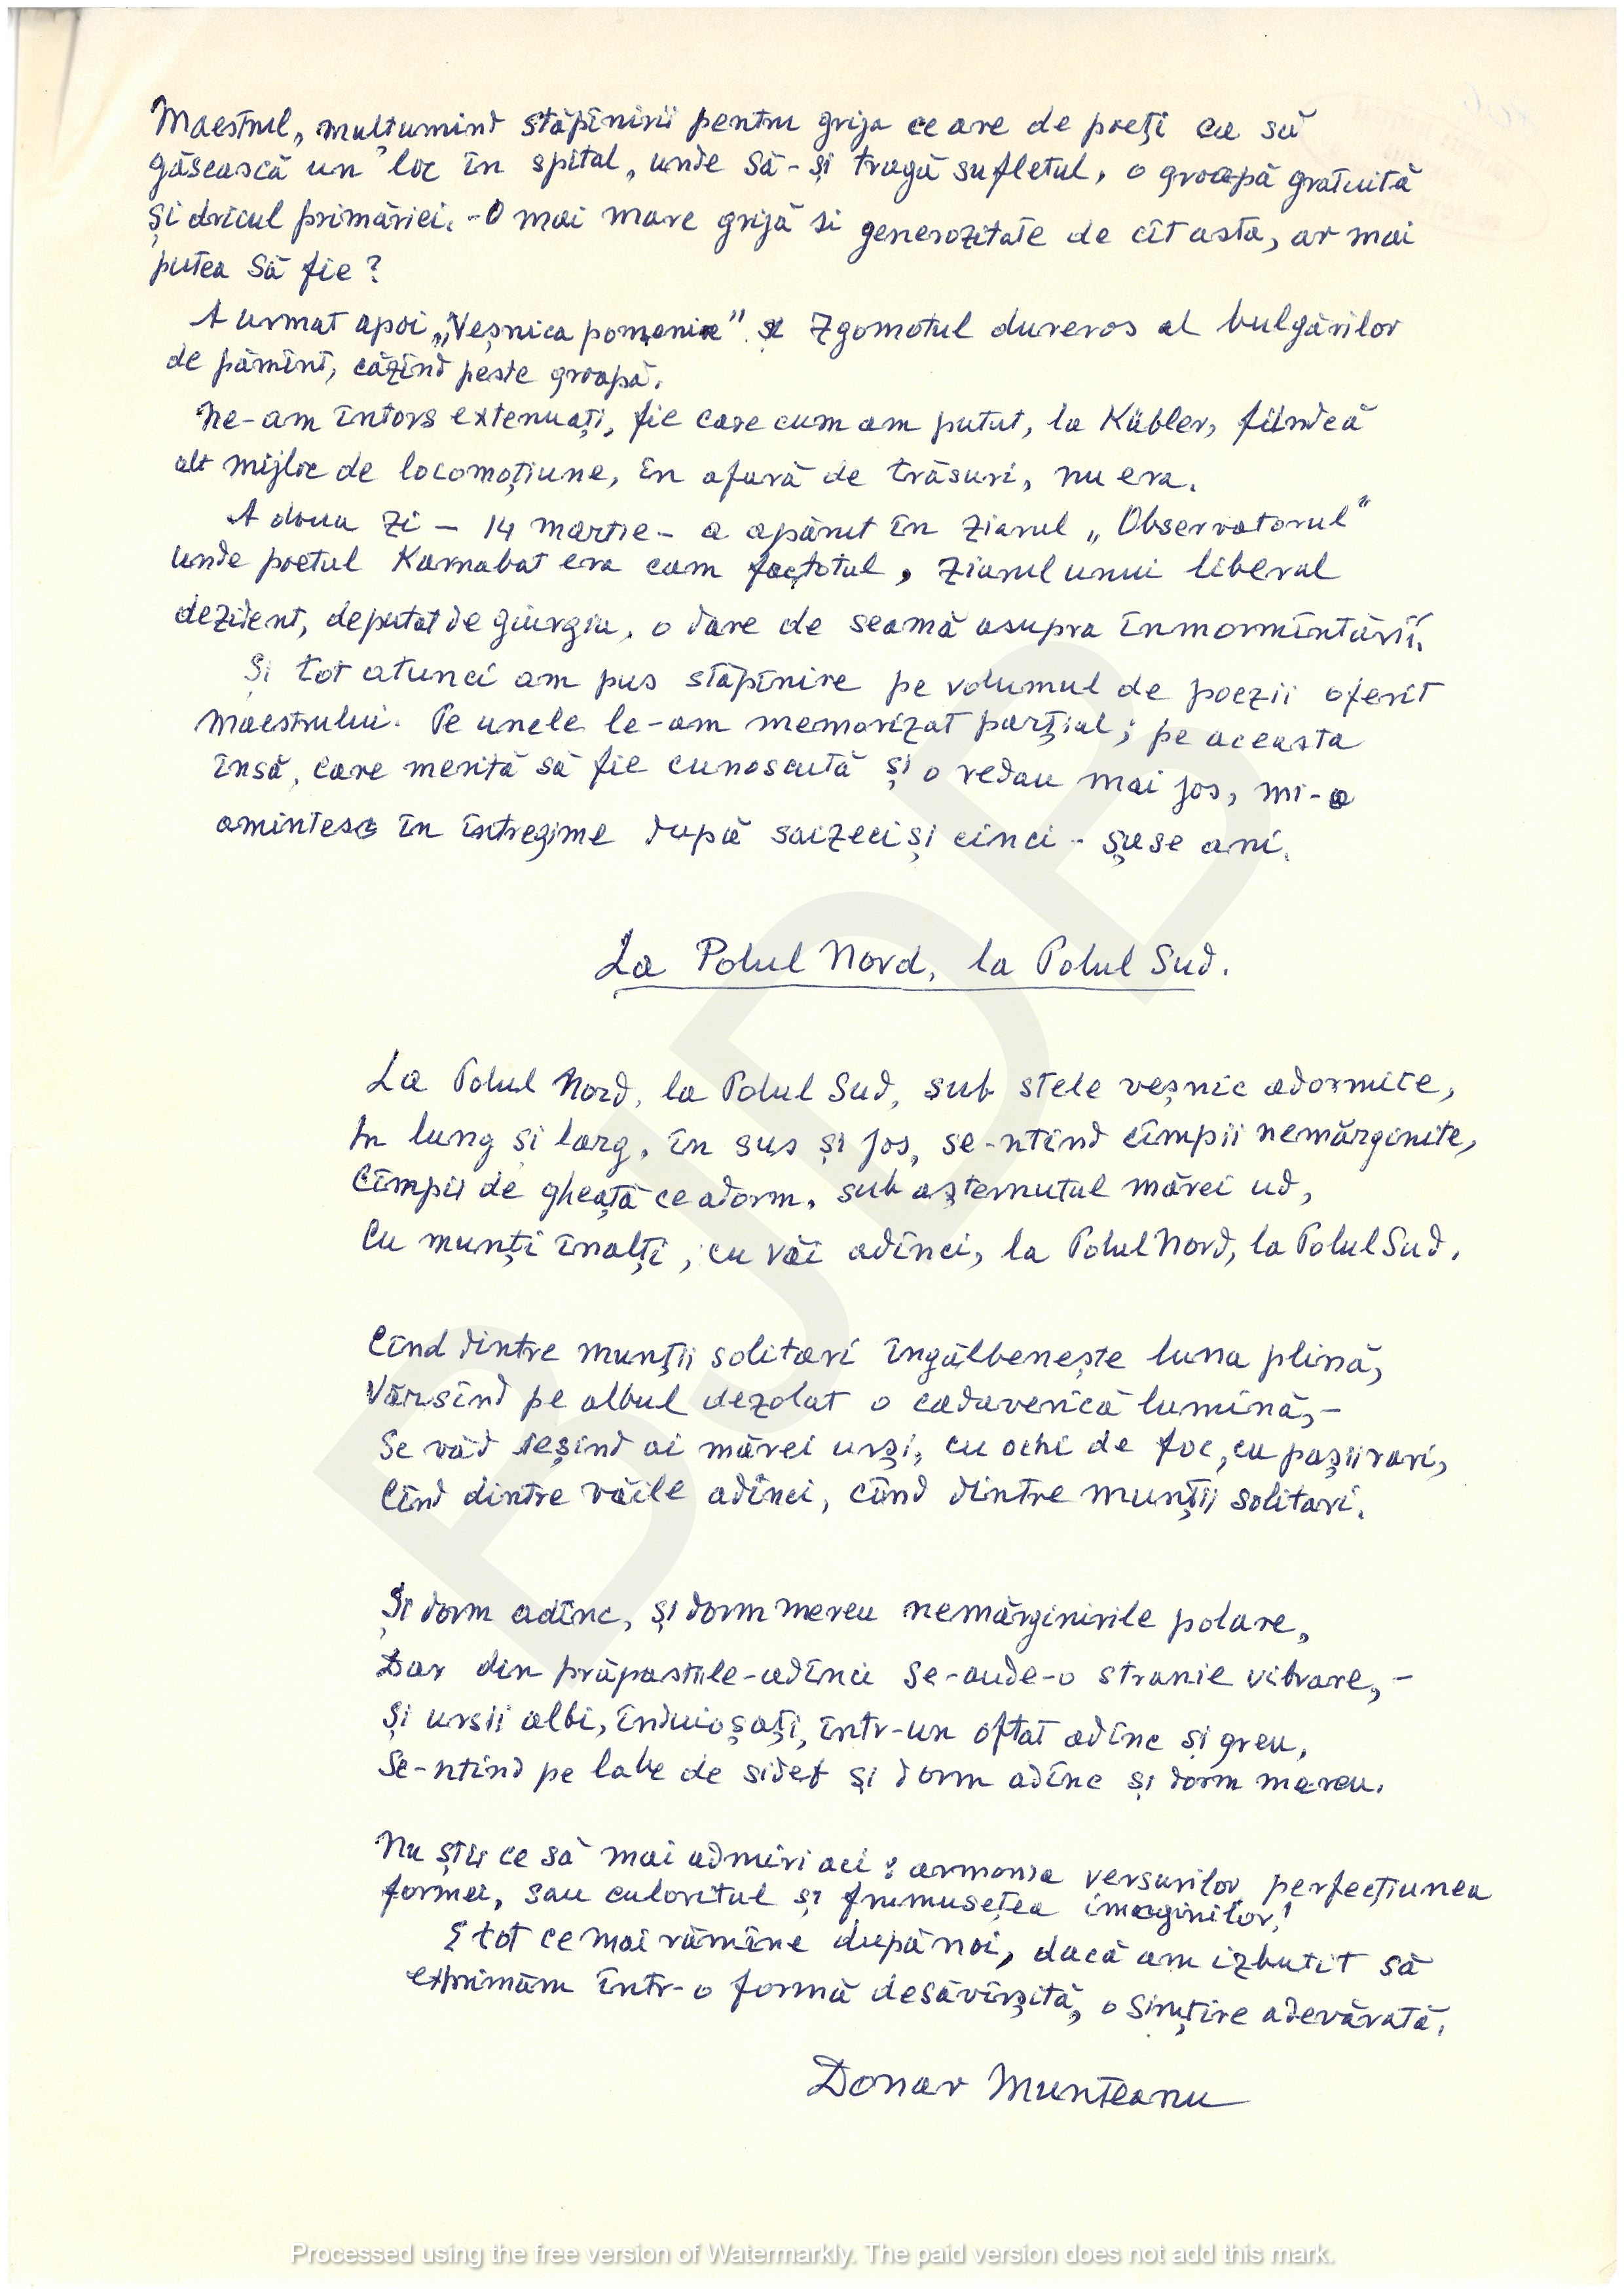 Maestrul, mulțumind stăpînirii pentru grija ce are de poeți ca să
găsească un loc în spital, unde să-și tragă sufletul, o groapă gratuită
și dricul primăriei. -O mai mare grijă si generozitate de cît asta, ar mai
putea să fie?
A urmat apoi „Veșnica pomenire" și zgomotul dureros al bulgărilor
de pămînt, căzînd peste groapă.
Ne-am întors extenuați, fie care cum am putut, la Kübler, fiindcă
alt mijloc de locomoțiune, în afară de trăsuri, nu era.
A doua zi - 14 martie - a apărut în ziarul „Observatorul"
unde poetul Karnabat era cam factotul, ziarul unui liberal
dezident, deputat de Giurgiu, o dare de seamă asupra înmormîntării.
Și tot atunci am pus stăpînire pe volumul de poezii oferit
maestrului. Pe unele le-am memorizat parțial; pe aceasta
însă, care merită să fie cunoscută și o redau mai jos, mi-o
amintesc în întregime după saizeci și cinci - șase ani.
La Polul Nord, la Polul Sud.
La Polul Nord, la Polul Sud, sub stele veșnic adormite,
In lung și larg, în sus și jos, se-ntind cîmpii nemărginite,
Cîmpii de gheață ce adorm, sub așternutul mărei ud,
Cu munți înalți, cu văi adînci, la Polul Nord, la Polul Sud.
Cînd dintre munții solitari îngălbenește luna plină,
Vărsînd pe albul dezolat o cadaverică lumină,-
Se văd ieșind ai mărei urși, cu ochi de foc, cu pașii rari,
Cînd dintre văile adînci, cînd dintre munții solitari.
Și dorm adînc, și dorm mereu nemărginirile polare,
Dar din prăpastiile-adînci se-aude-o stranie vibrare,-
Și ursii albi, înduioșați, într-un oftat adînc și greu,
Se-ntind pe labe de sidef și dorm adînc și dorm mereu.
Nu știi ce să mai admiri aci: armonia versurilor, perfecțiunea
formei, sau culoritul și frumusețea imaginilor!
E tot ce mai rămîne după noi, dacă am izbutit să
exprimăm într-o formă desăvîrșită, o simțire adevărată.
Donar Munteanu
BJDB
Processed using the free version of Watermarkly. The paid version does not add this mark.